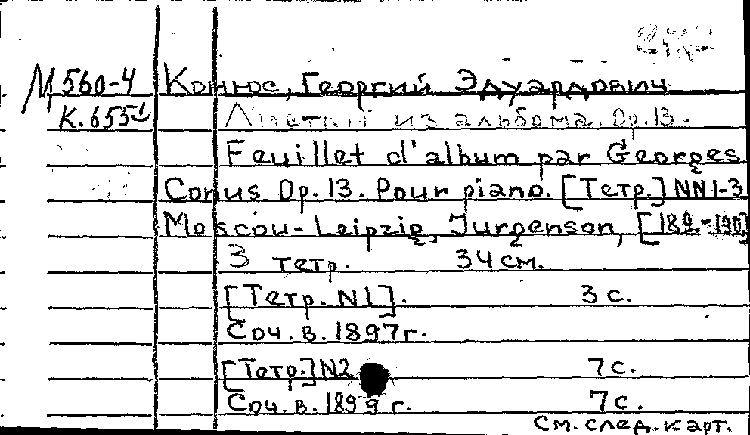 М 560-4 Конюс, Георгий Эдуардович
К. 655 Листки из альбома. Op. 13.
Feuillet d'album par Georges
Conus Op. 13. Pour piano. [Тетр.] NN 1-3
Moscou-Leipzig, Jurgenson, [189.-190]
3 тетр. 34 см.
[Тетр. N1]. 3 с.
Соч. в. 1897 г.
[Тетр.] N2 7 с.
Соч. в. 1899 г. 7 с.
См. след. карт.